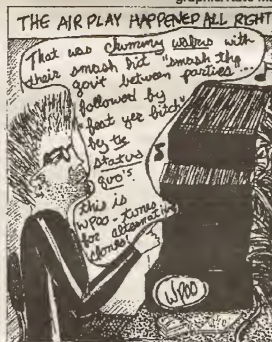 THE AIR PLAY HAPPENED ALL RIGHT
That was chuming walrus with
their smash hit "smash the
gov't between parties"...
followed by
"beat yer bitch"
by the
status
quo's.
this is
WPOO - tunes
for alternative
clones!
WPOO